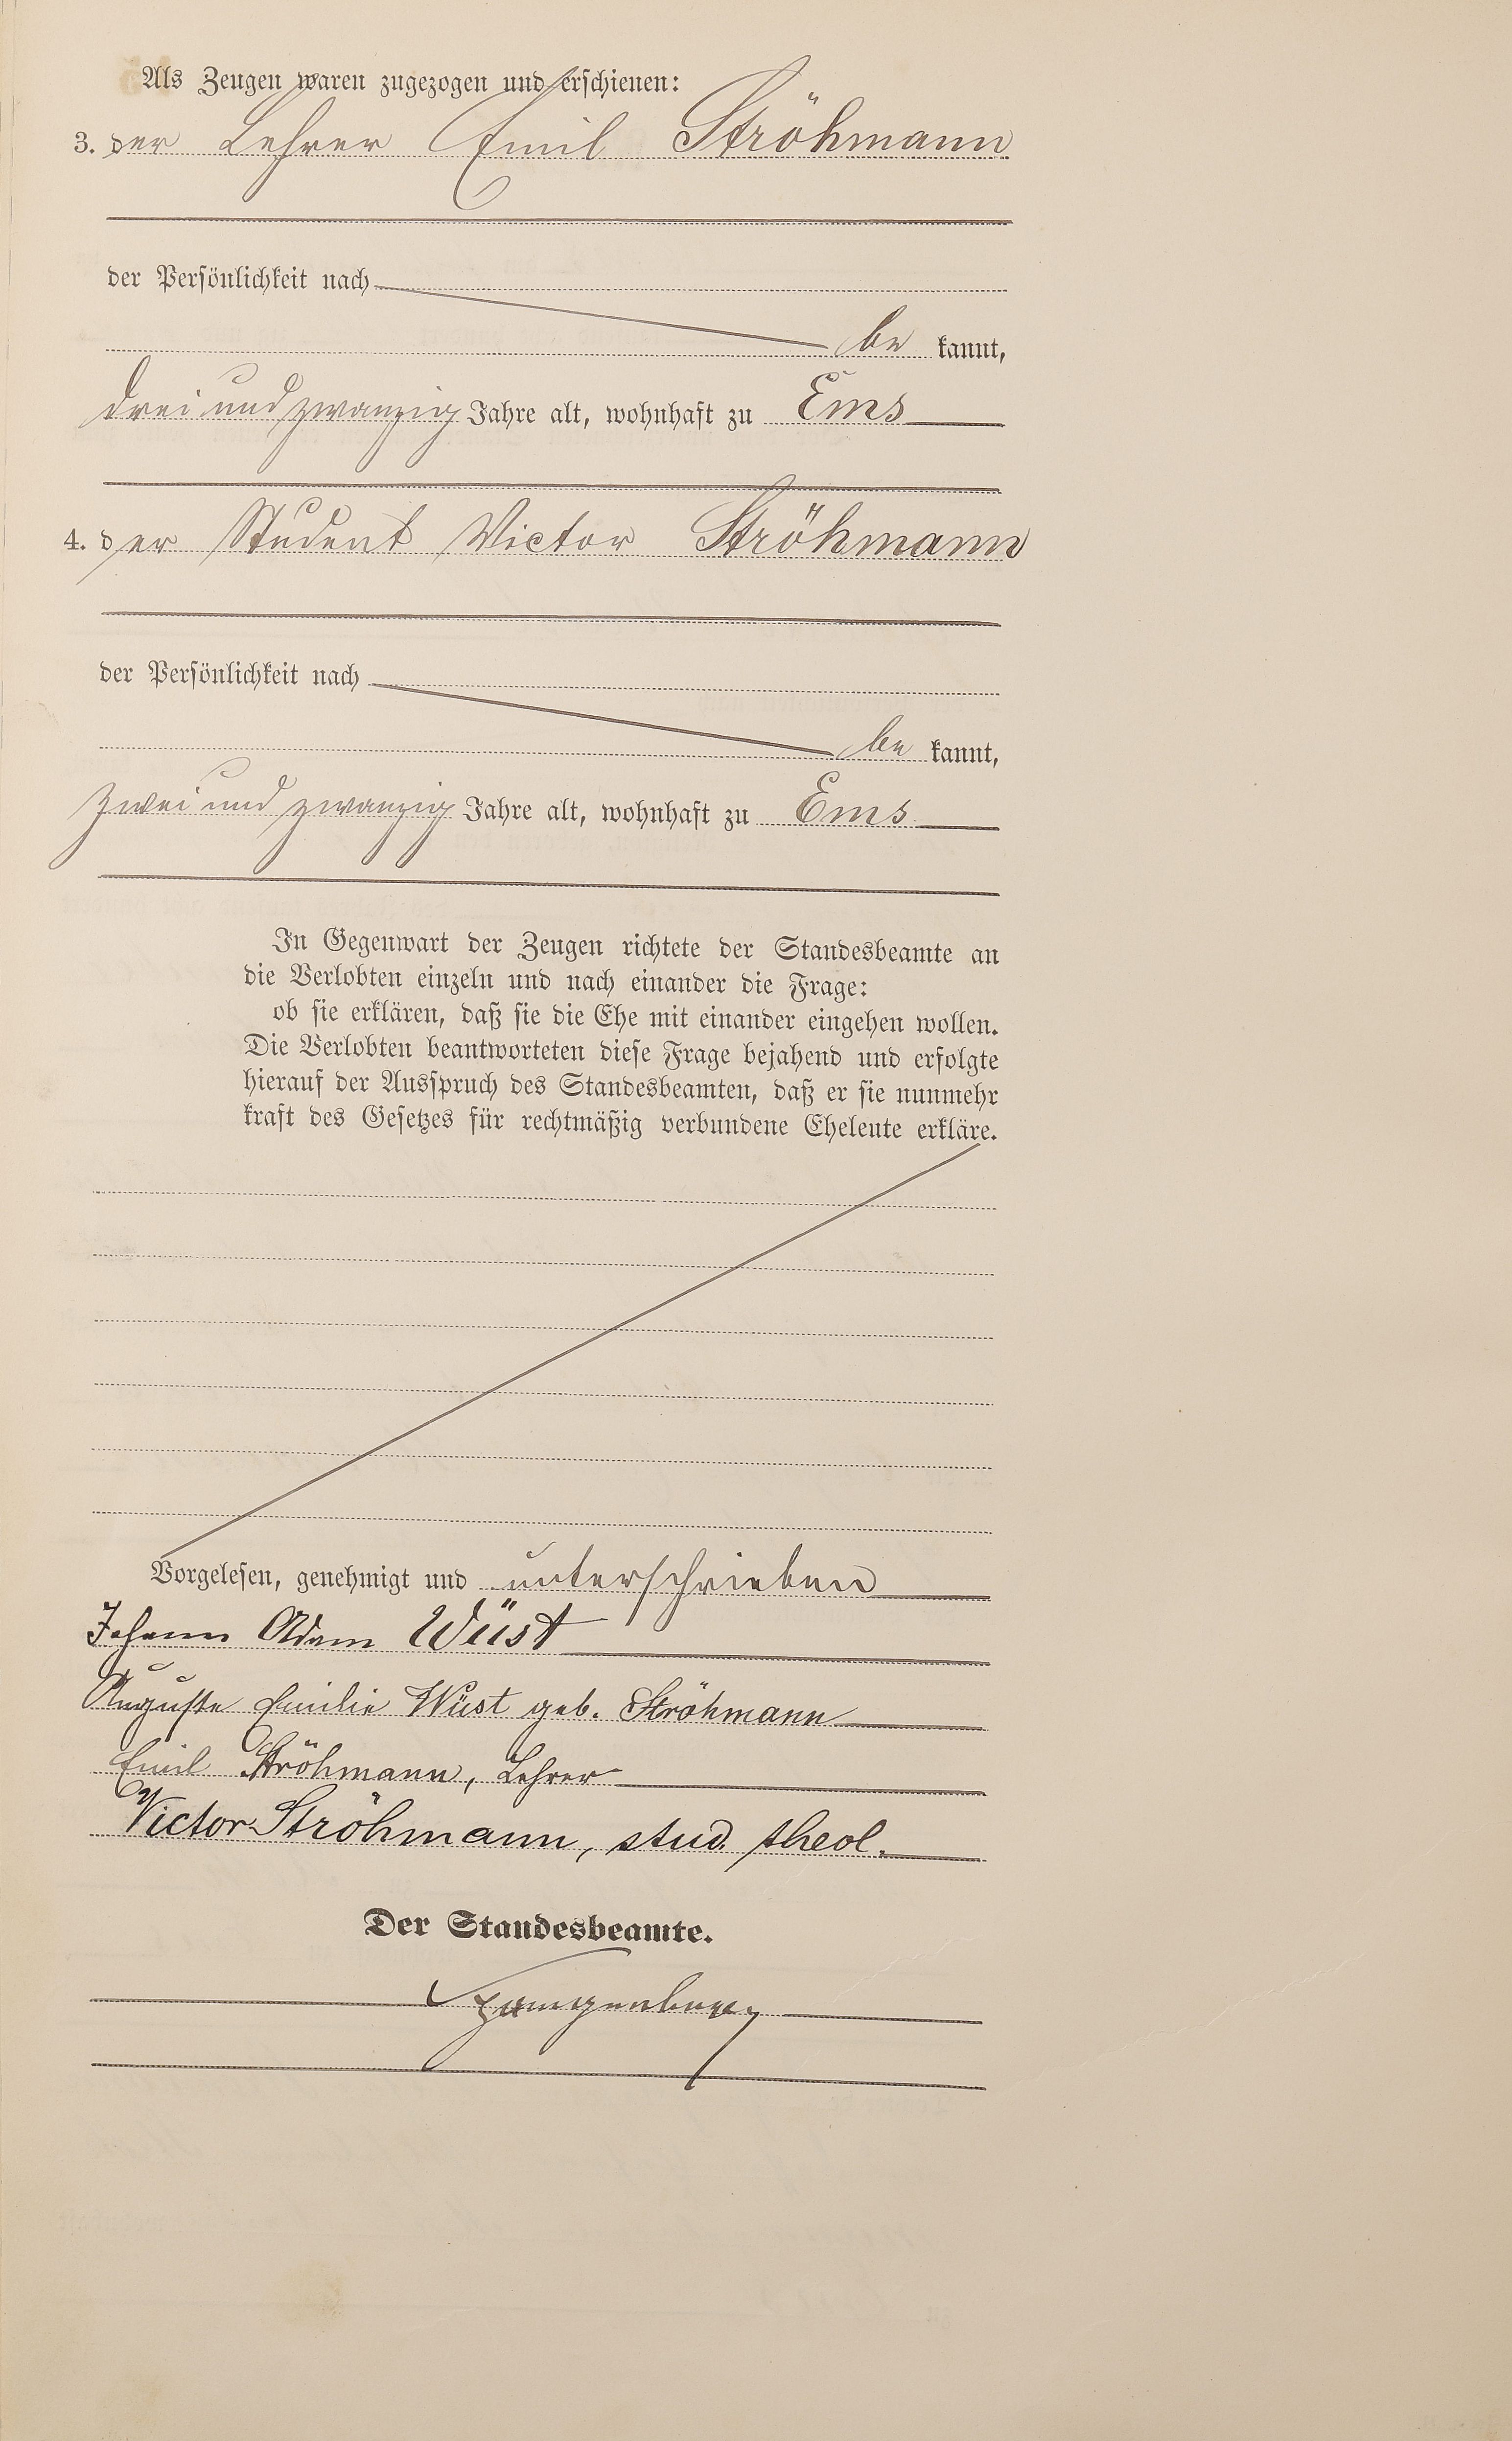 Als Zeugen waren zugezogen und erschienen:
3. der Lehrer Emil Ströhmann
der Persönlichkeit nach
be kannt,
drei und zwanzig Jahre alt, wohnhaft zu Ems
4. der Student Victor Ströhmann
der Persönlichkeit nach
be kannt,
zwei und zwanzig Jahre alt, wohnhaft zu Ems
In Gegenwart der Zeugen richtete der Standesbeamte an
die Verlobten einzeln und nach einander die Frage:
ob sie erklären, daß sie die Ehe mit einander eingehen wollen.
Die Verlobten beantworteten diese Frage bejahend und erfolgte
hierauf der Ausspruch des Standesbeamten, daß er sie nunmehr
kraft des Gesetzes für rechtmäßig verbundene Eheleute erkläre.
Vorgelesen, genehmigt und unterschrieben
Johann Adam Wüst
Auguste Emilie Wüst geb. Ströhmann
Emil Ströhmann, Lehrer
Victor Ströhmann, stud. theol.
Der Standesbeamte.